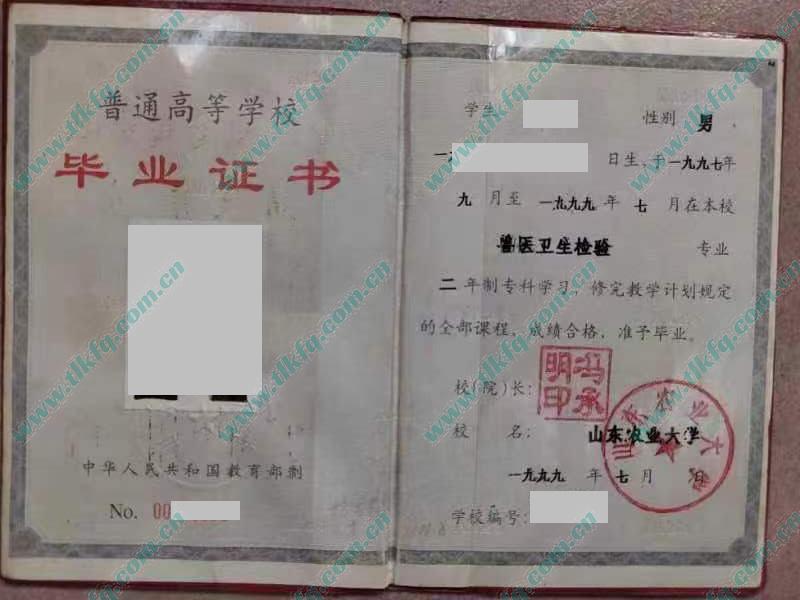 普通高等学校
毕业证书
中华人民共和国教育部制
No. 00
学生 性别 男
一九 日生,于一九九七年
九 月至 一九九九 年 七 月在本校
兽医卫生检验 专业
二 年制专科学习,修完教学计划规定
的全部课程,成绩合格,准予毕业。
校(院)长: 冯承明印
校 名: 山东农业大学
山东农业大学
一九九九 年 七 月 日
学校编号:
www.tlkfq.com.cn